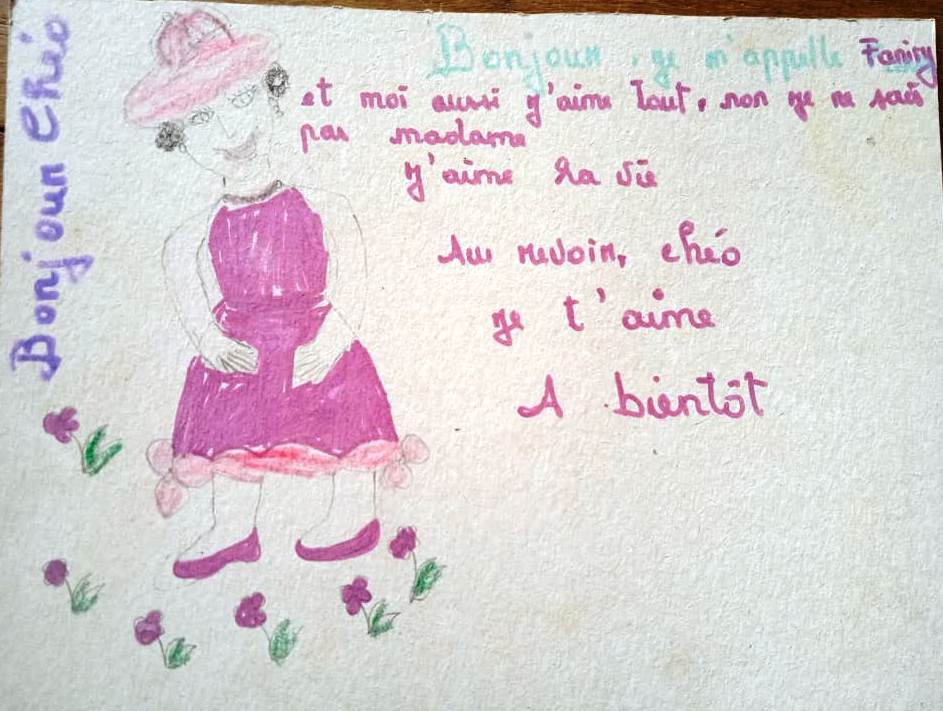 Bonjour Chéo
Bonjour, je m'appelle Faniry
et moi aussi j'aime tout, non je ne sais
pas madame
j'aime la vie
Au revoir, chéo
je t'aime
A bientôt